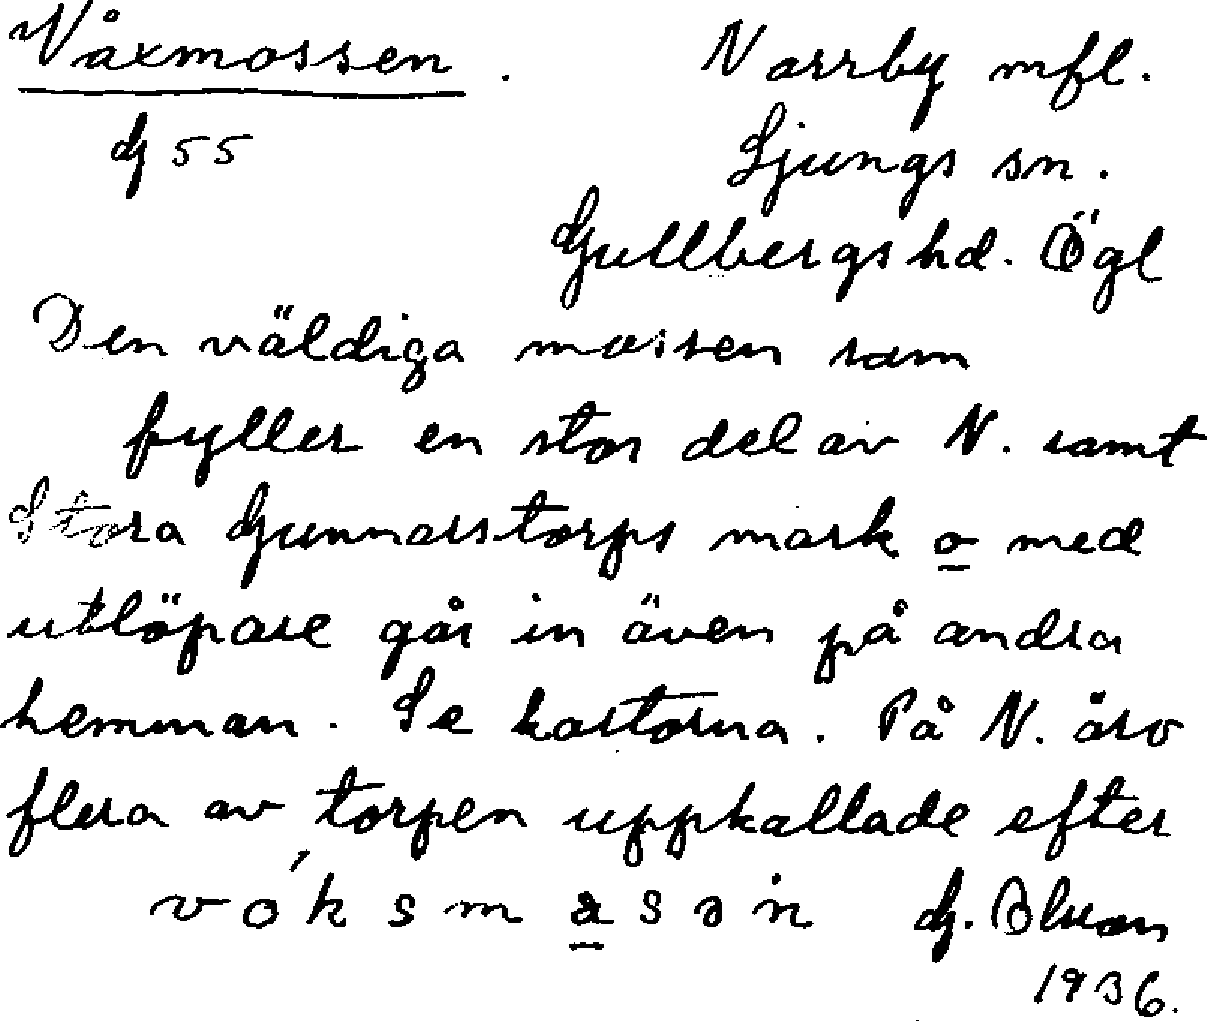 Våxmossen. Narrby mfl.
G 55 Ljungs sn.
Gullbergs hd. Ögl
Den väldiga mossen som
fyller en stor del av N. samt
Stora Gunnarstorps mark o med
utlöpare går in även på andra
hemman. Se kartorna. På N. äro
flera av torpen uppkallade efter
G.
1936.